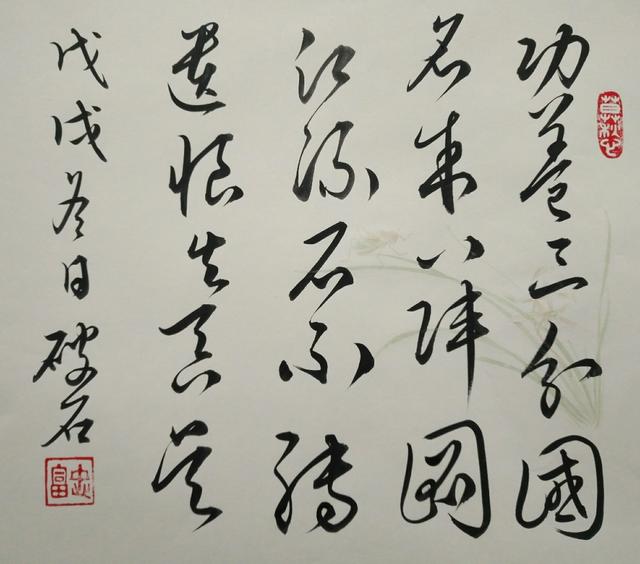 功盖三分國
名成八陣圖
江流石不轉
遺恨失吞吴
戊戌冬日 破石